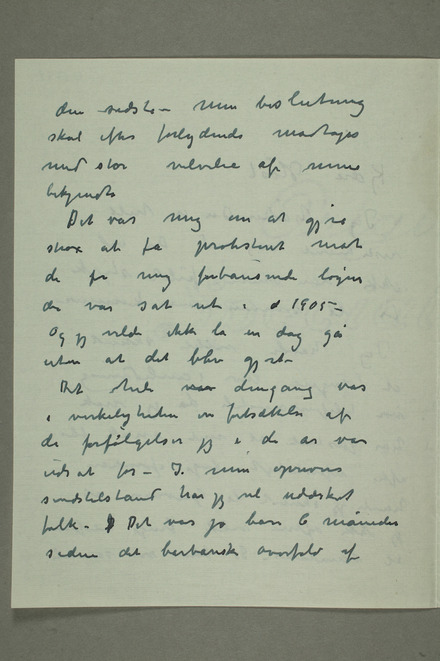 den sidste – min beslutning
skal efter forlydende modtages
med stor velvilie af mine
bekjendte
Det var mig om at gjøre
strax at få protesteret mod
de for mig forbausende løgne
der var sat ut i 1905 –
Og jeg vilde ikke la en dag gå
uten at det blev gjort –
Det hele dengang var
i virkeligheden en fortsættelse af
de forfølgelser jeg i de år var
udsat for – I min oprevne
sindstilstand har jeg vel udskjelt
folk – Det var jo bare 6 måneder
siden det barbariske overfald af